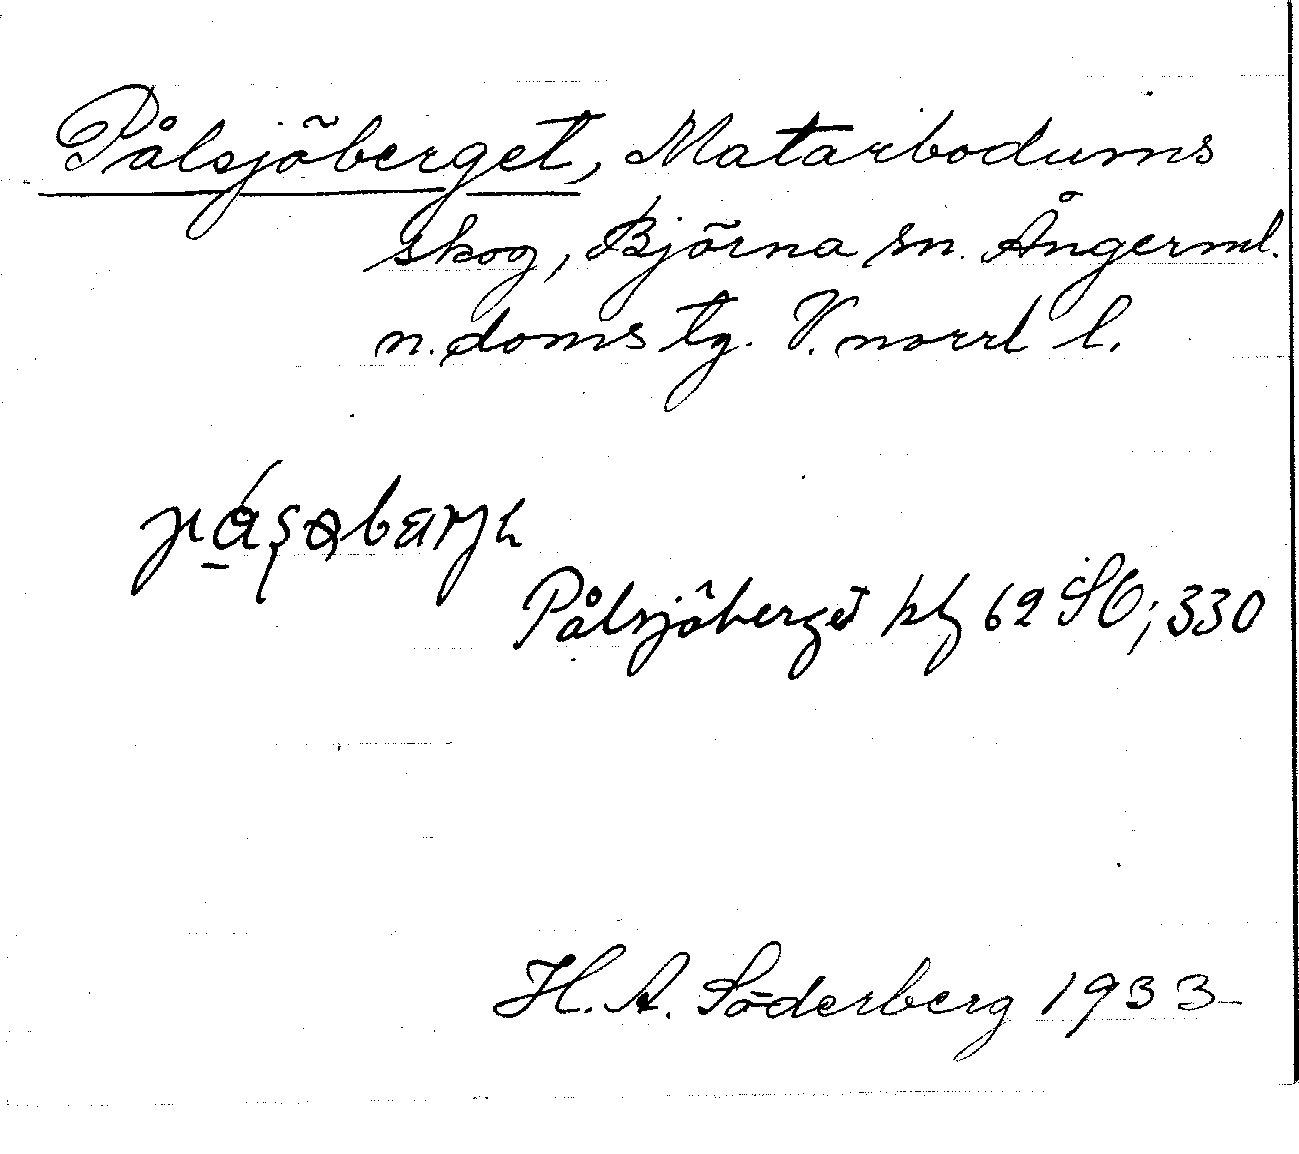 Pålsjöberget, Matarbodums
skog, Björna sn. Ångerml.
n. doms tg. V. norrl l.
Pålsjöberget kbl 62 SO; 330
H. A. Söderberg 1933